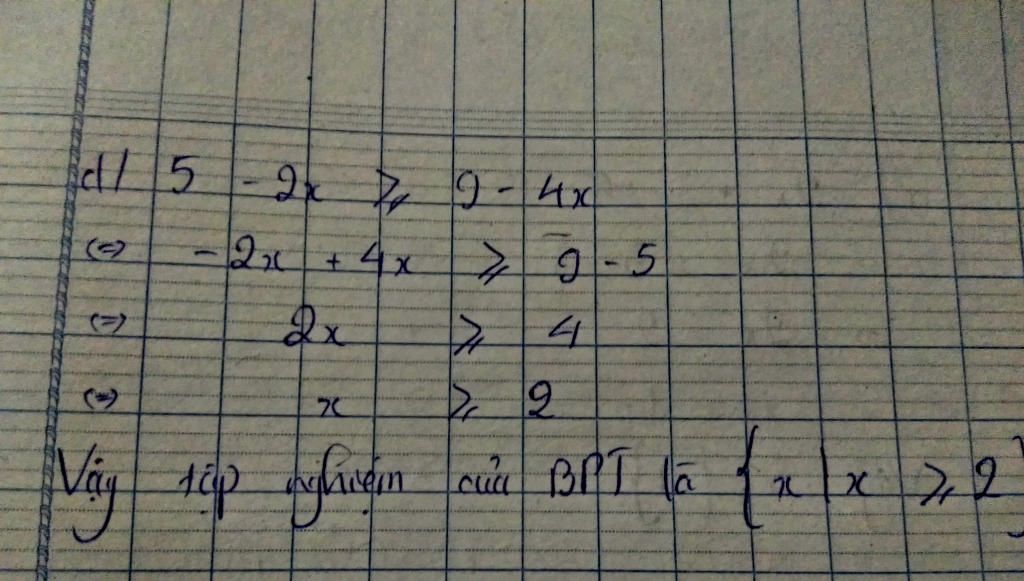 d/ 5 - 2x ⩾ 9 - 4x
(=) - 2x + 4x ⩾ 9 - 5
(=) 2x ⩾ 4
(=) x ⩾ 2
Vậy tập nghiệm của BPT là {x | x ⩾ 2}